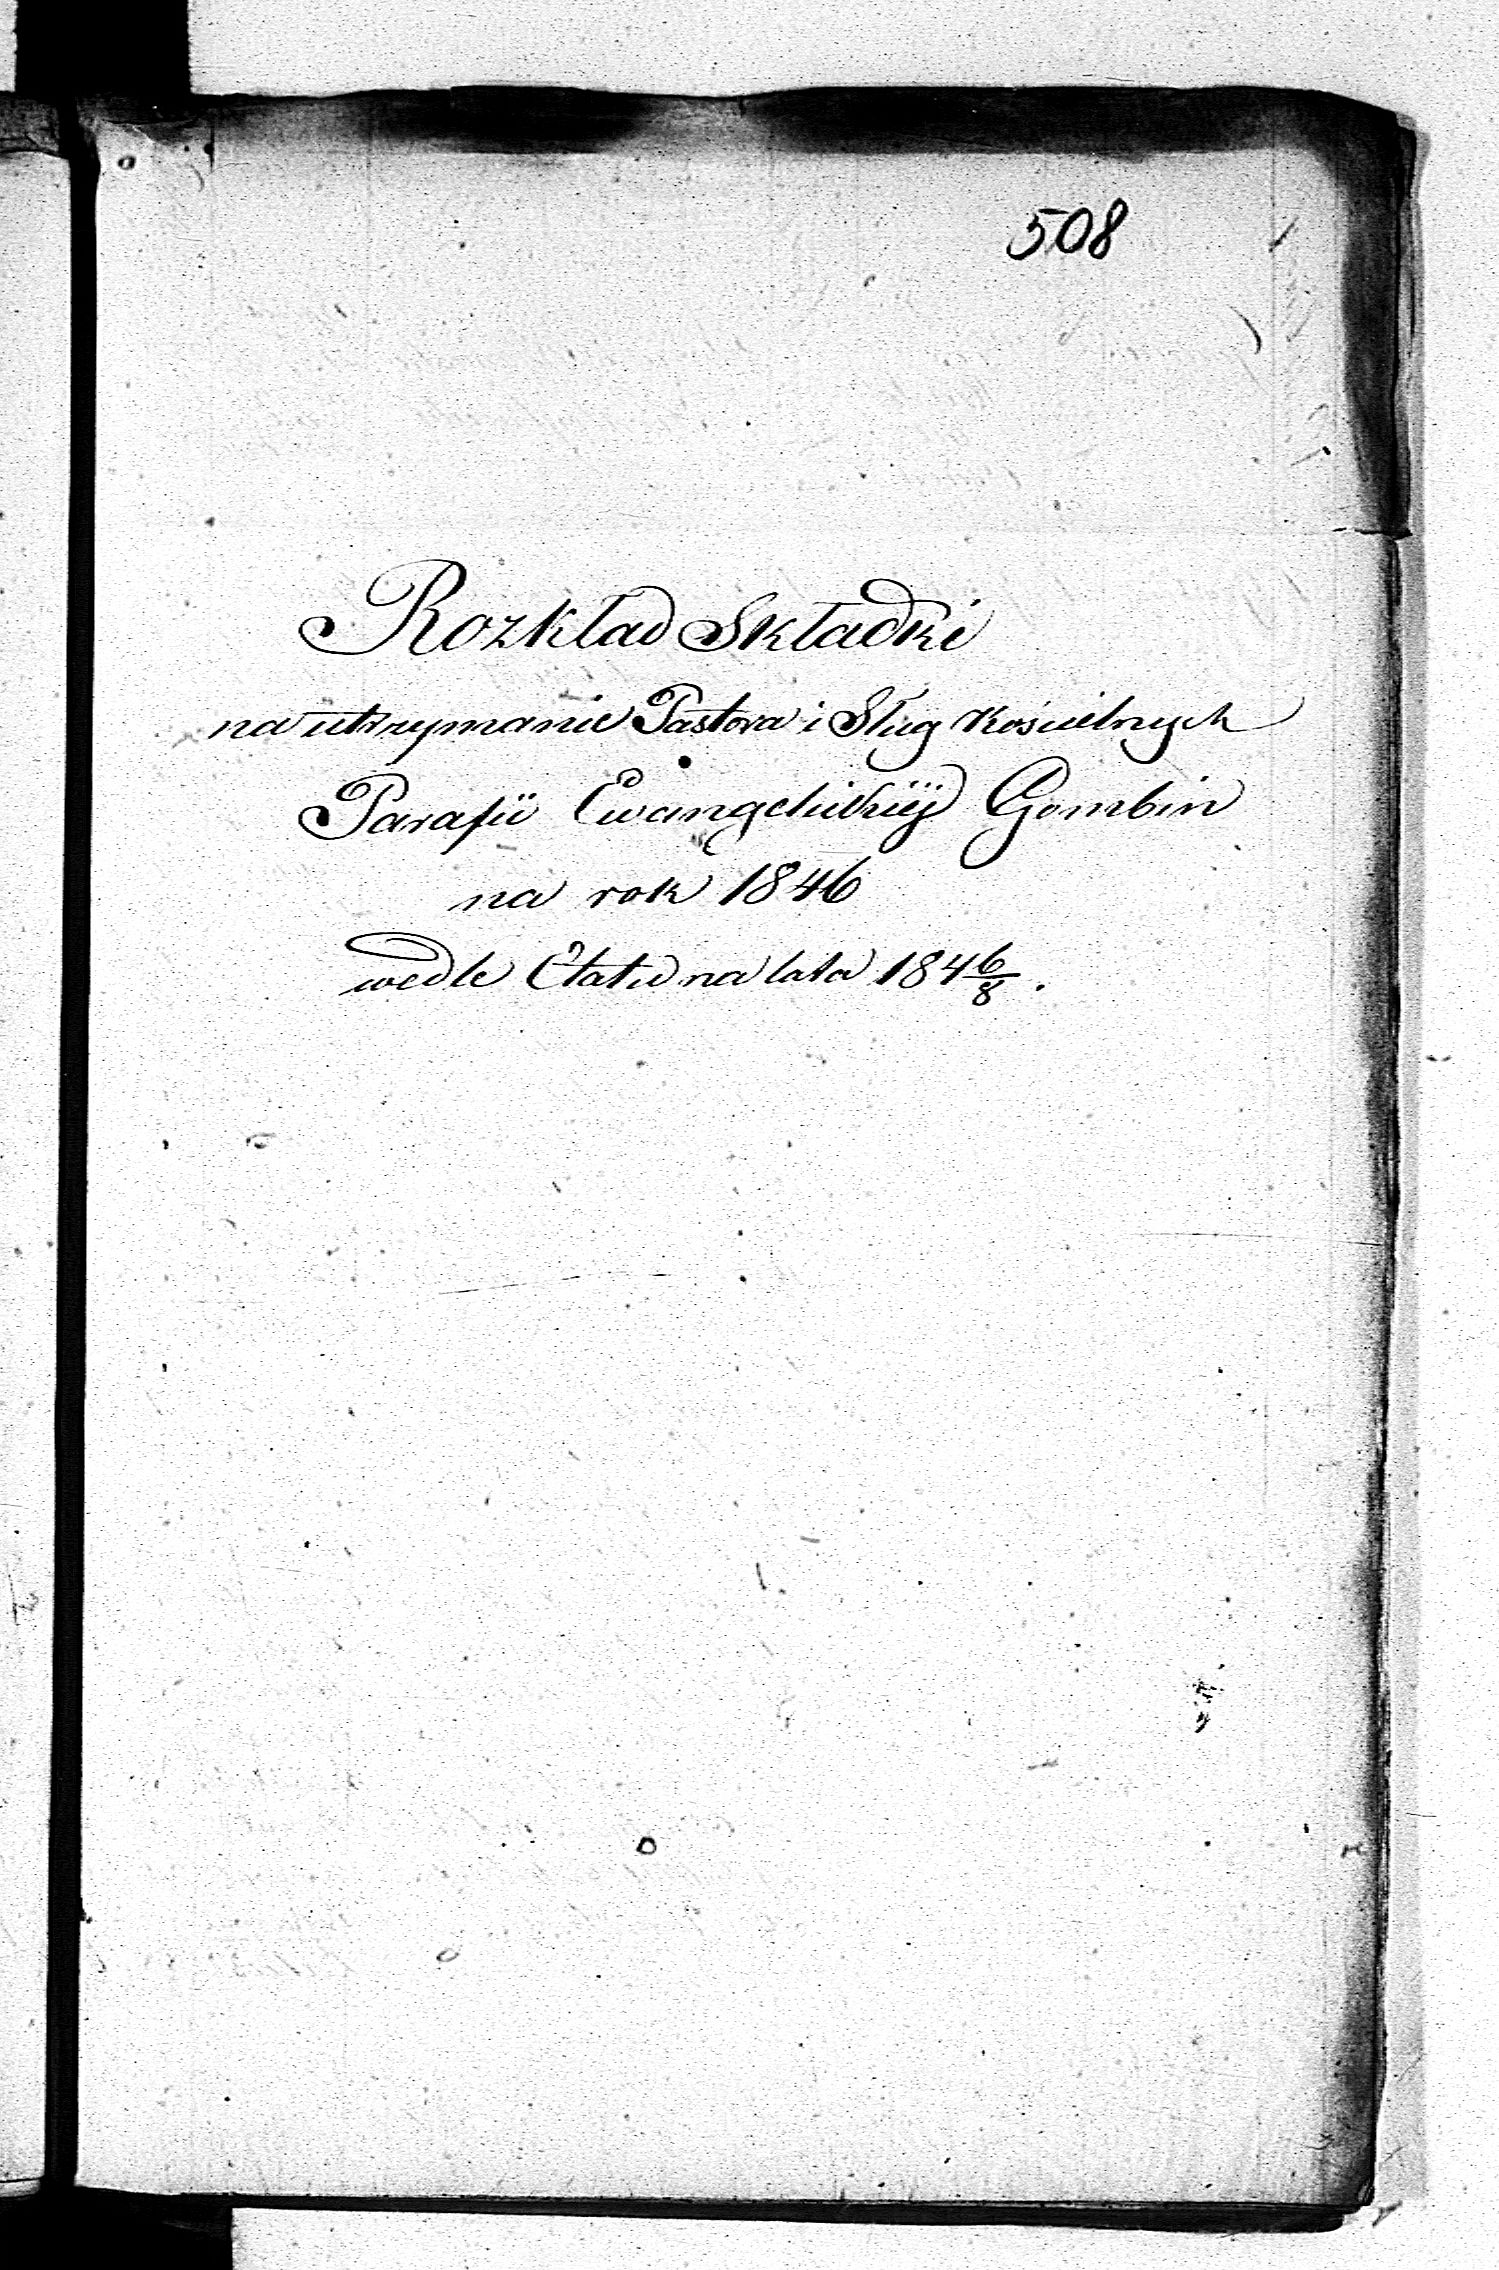 508
Rozkład Składki
na utrzymanie Pastora i Sług Kościelnych
Parafii Ewangelickiéj Gombin
na rok 1846
wedle Etatu na lata 184 6/8.